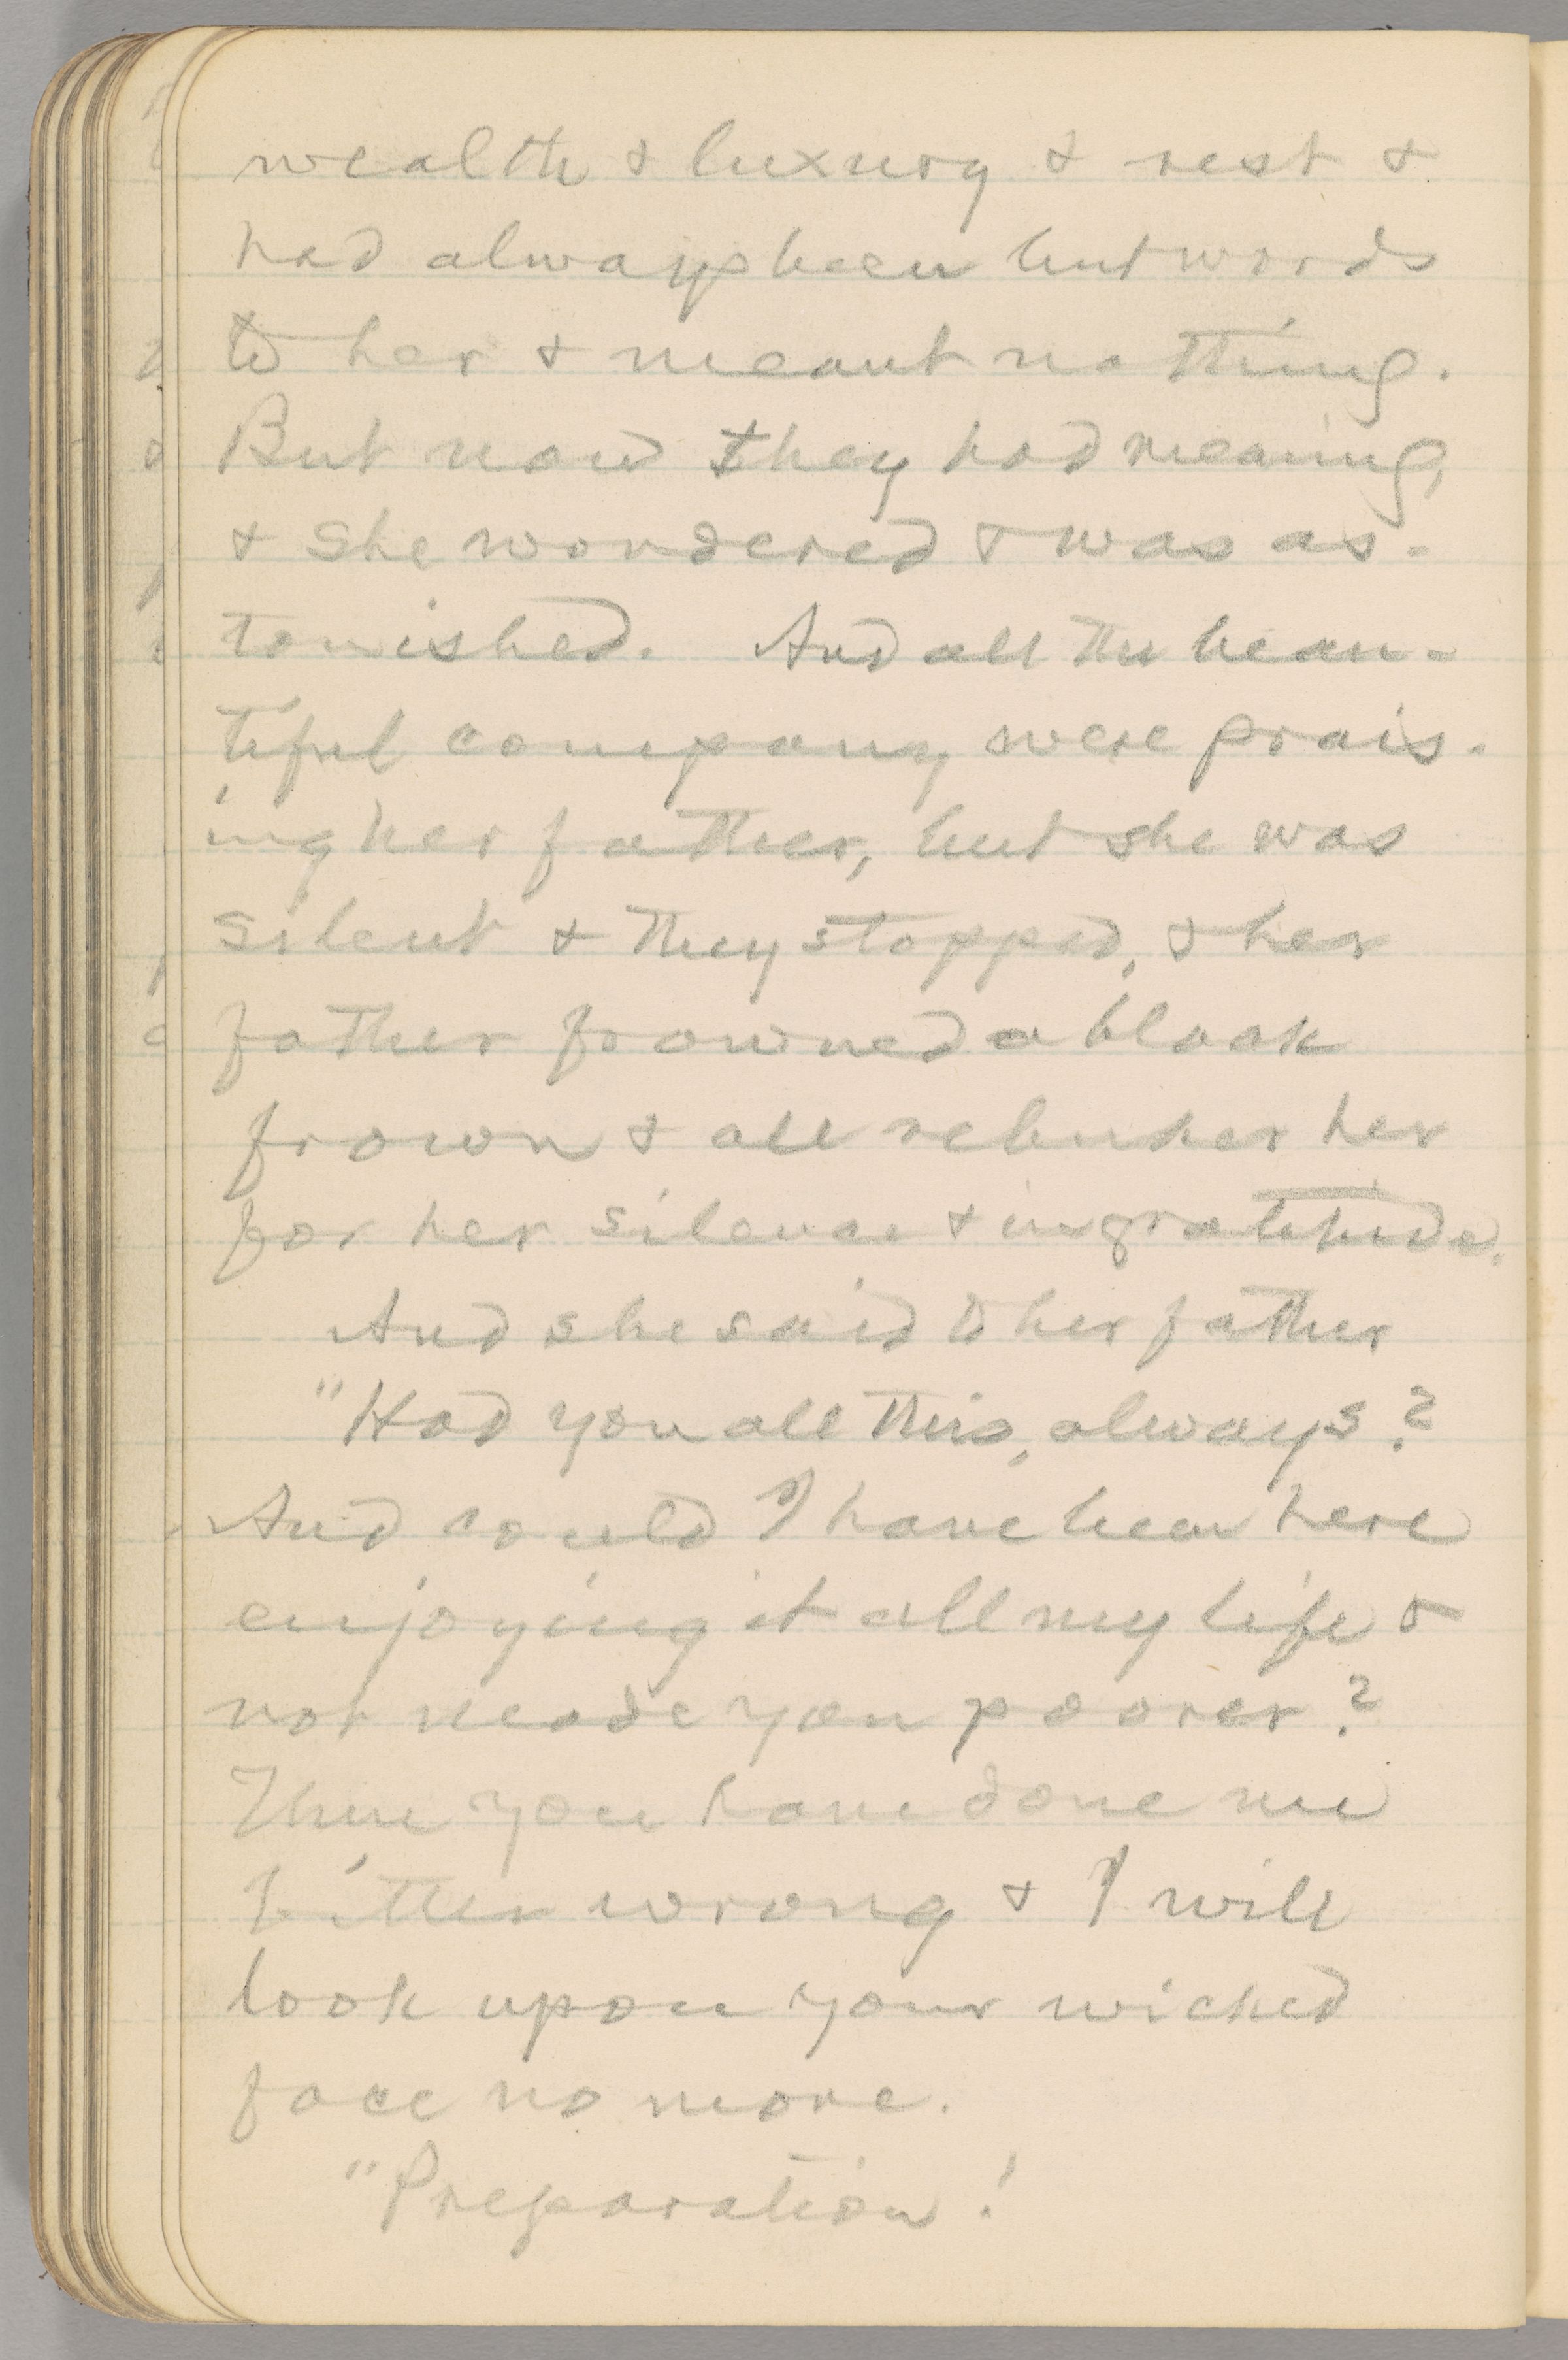 wealth & luxury & rest &
had always been but words
to her & meant nothing.
But now they had meaning,
& she wondered & was as-
tonished. And all the beau-
tiful company were prais-
ing her father, but she was
silent & they stopped, & her
father frowned a black
frown & all rebuked her
for her silence & ingratitude.
And she said to her father
"Had you all this, always?
And could I have been here
enjoying it all my life &
not made you poorer?
Then you have done me
bitter wrong & I will
look upon your wicked
face no more.
"Preparation!